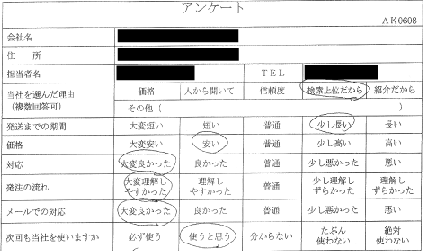 アンケート
AH0608
会社名
住 所
担当者名 TEL
当社を選んだ理由 価格 人から聞いて 信頼度 検索上位だから 紹介だから
(複数回答可) その他 ( )
発送までの期間 大変短い 短い 普通 少し悪い 長い
価格 大変安い 安い 普通 少し高い 高い
対応 大変良かった 良かった 普通 少し悪かった 悪い
発注の流れ 大変理解しやすかった 理解しやすかった 普通 少し理解しずらかった 理解しずらかった
メールでの対応 大変良かった 良かった 普通 少し悪かった 悪い
次回も当社を使いますか 必ず使う 使うと思う 分からない たぶん使わない 絶対使わない